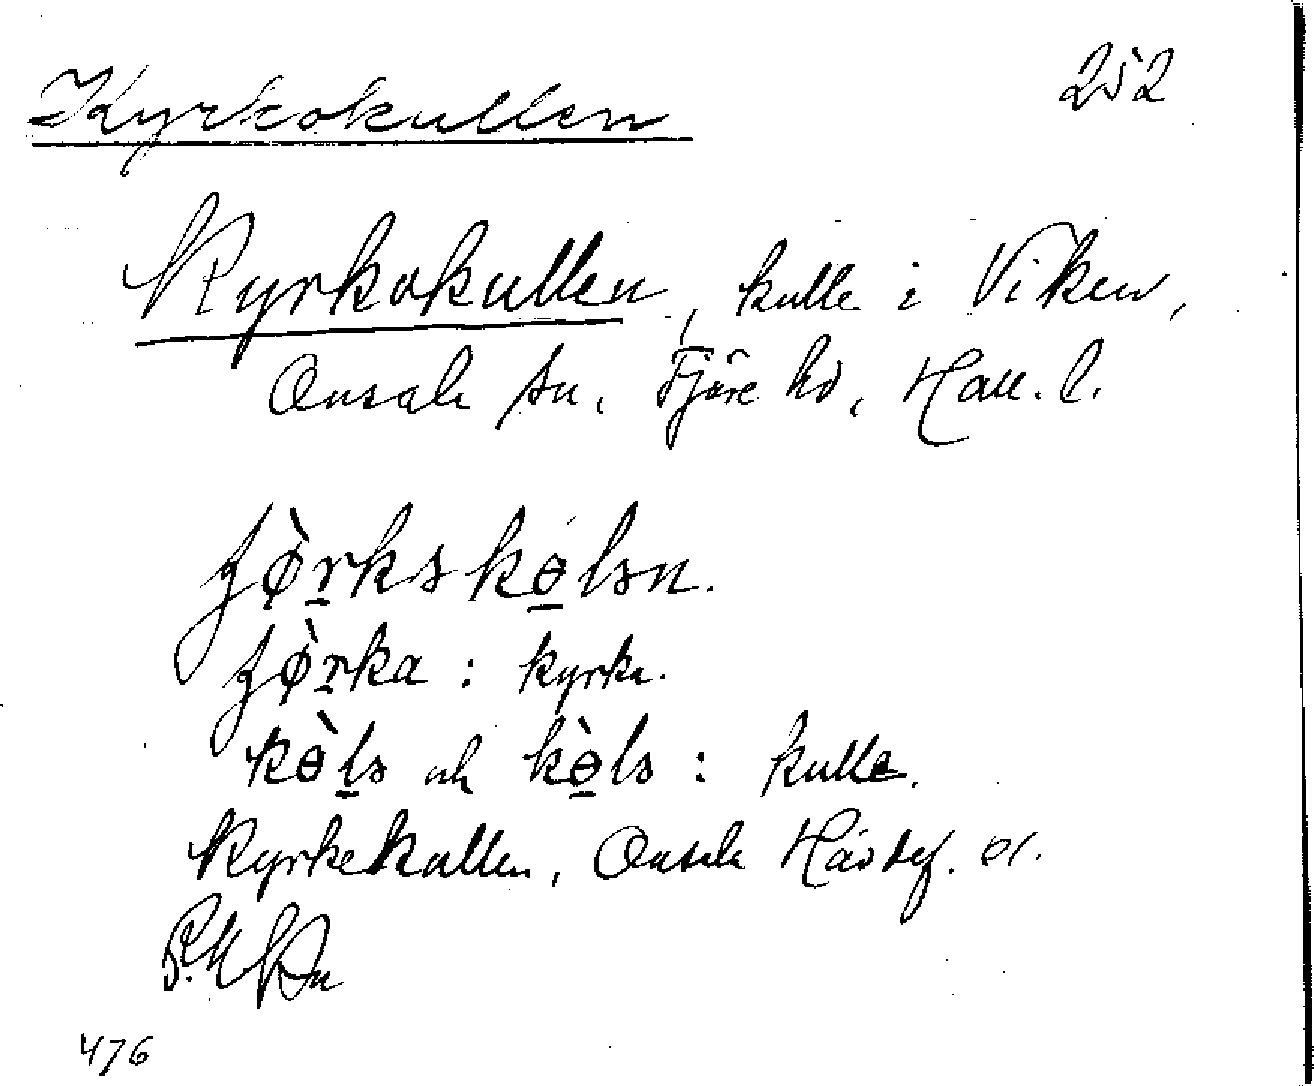 Kyrkokullen 252
Kyrkokullen, kulle i Viken,
Onsala sn, Fjäre hd, Hall. l.
jø̀rkskɵlsn.
jø̀rka : kyrka.
kɵ̀ls och kɵ̀ls : kulle.
Kyrkekullen, Onsala
476